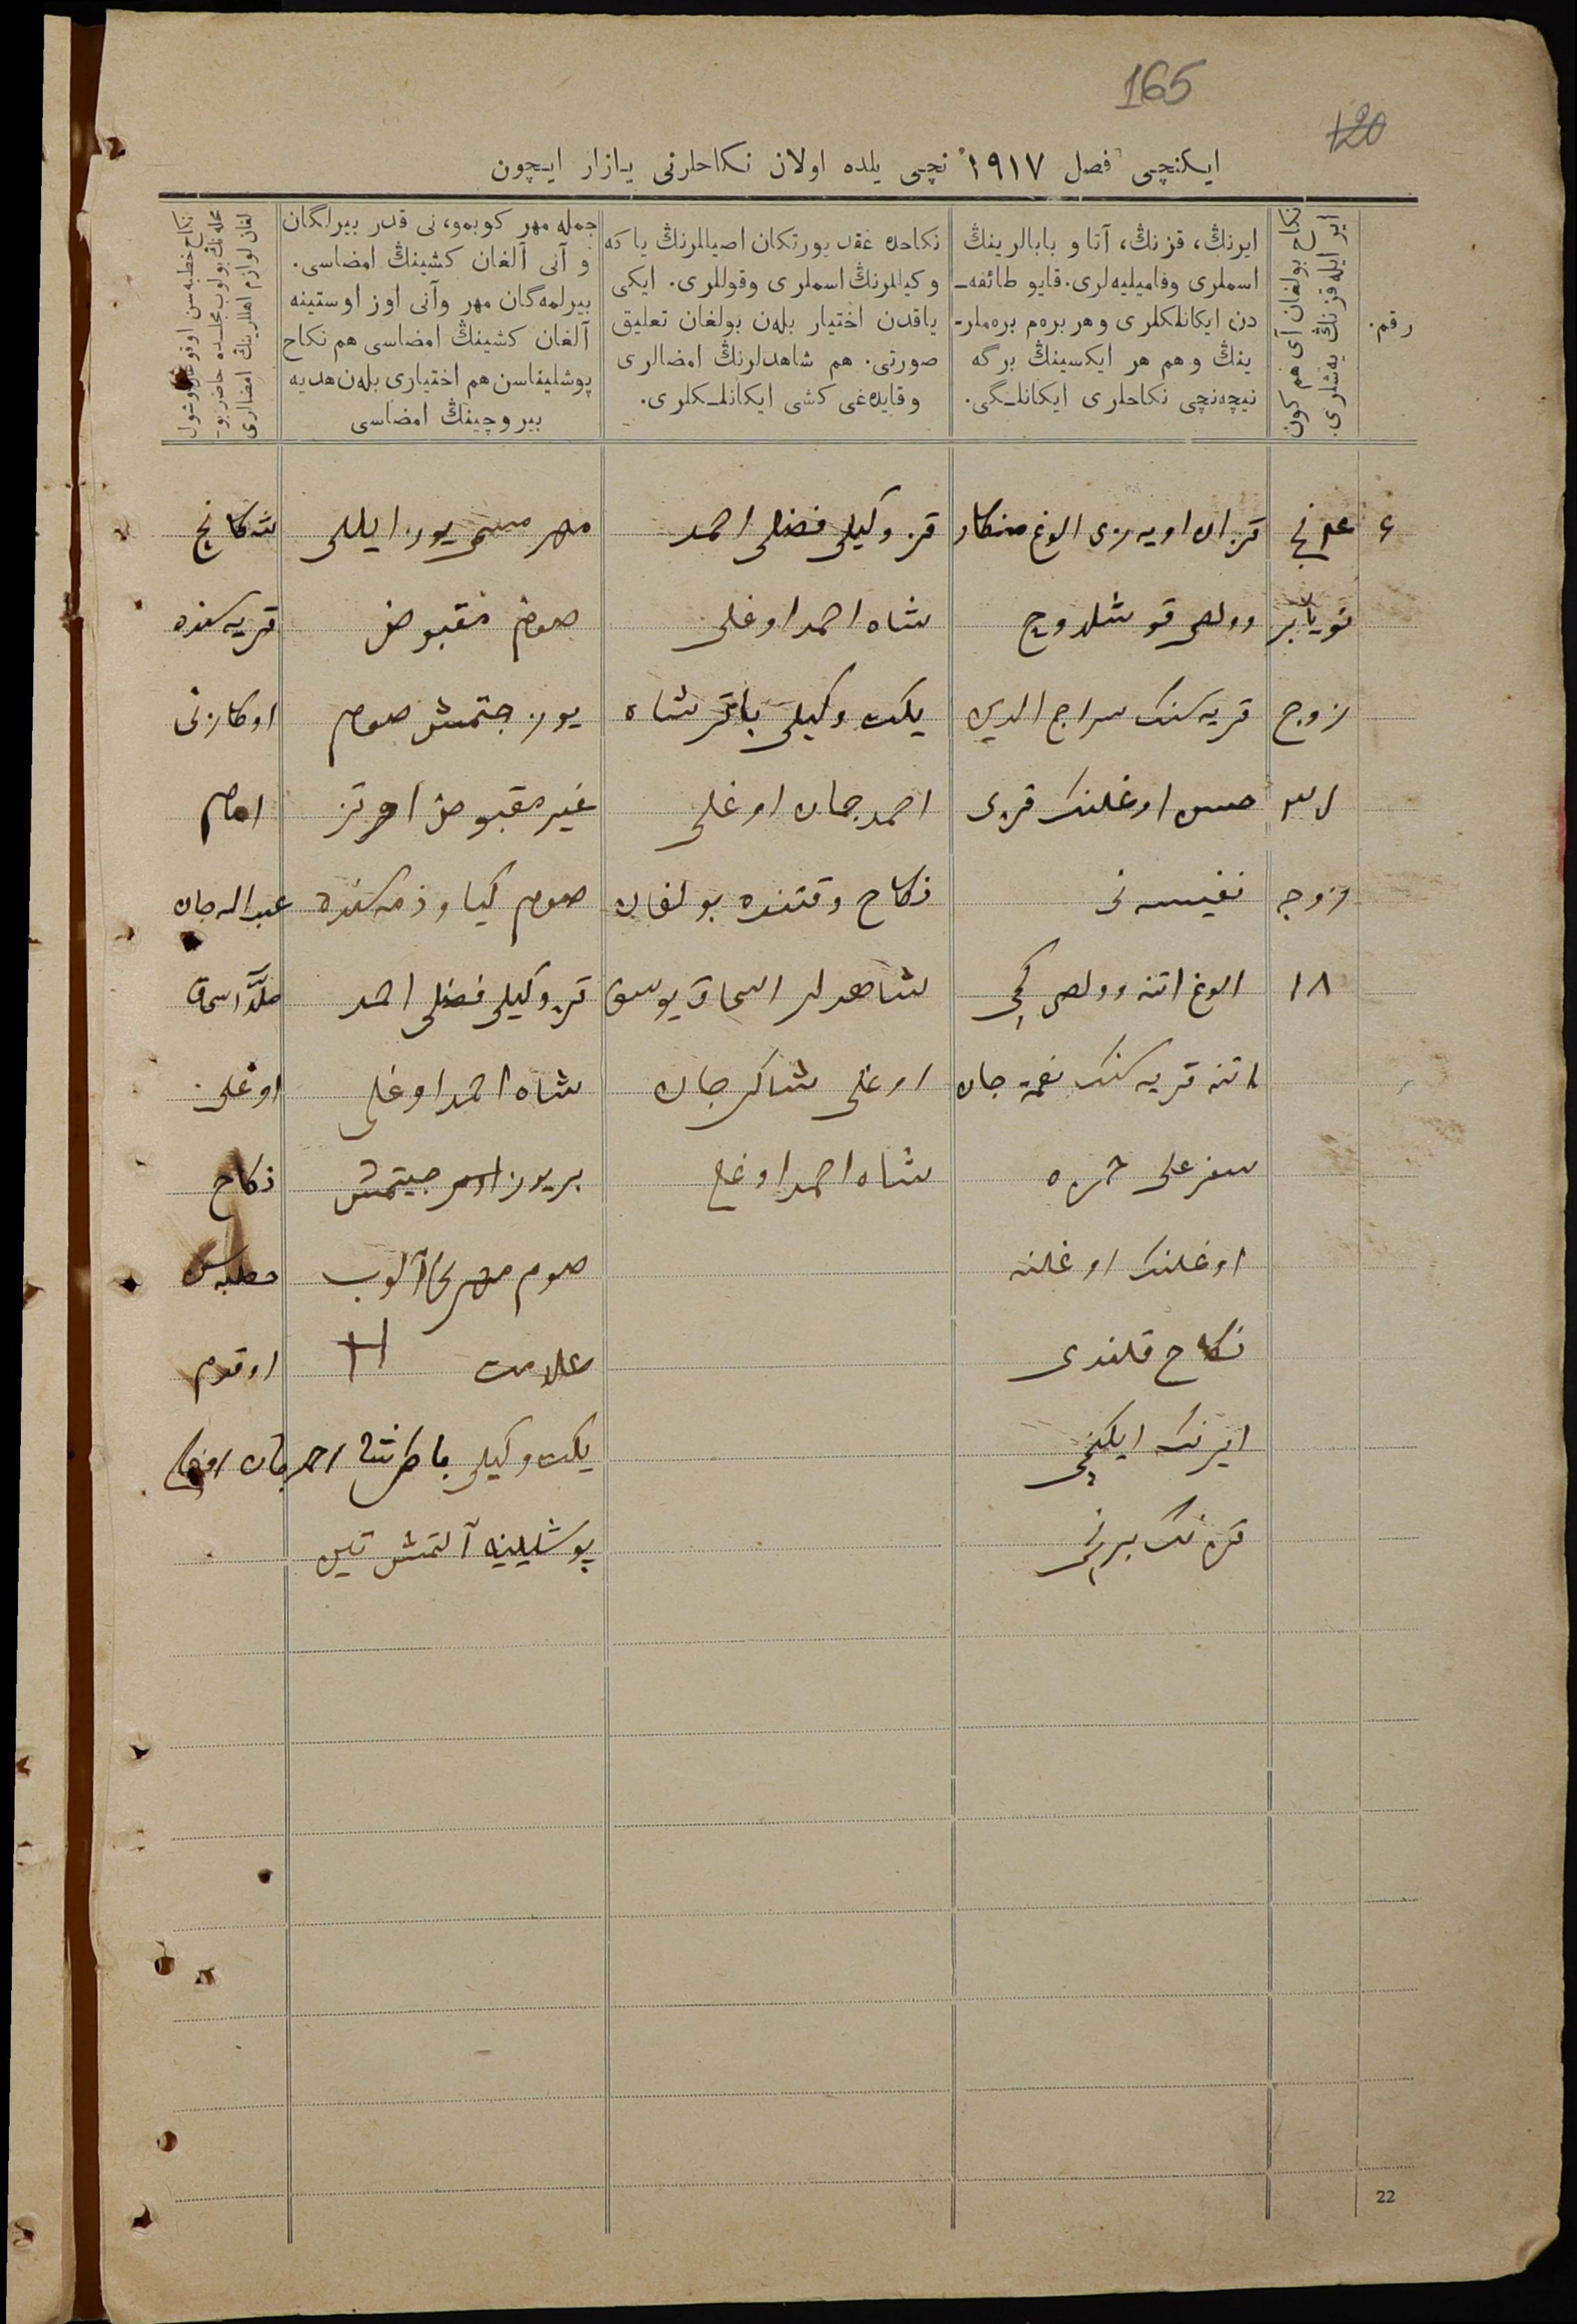 165
120
ایکنچی فصل ۱۹۱۷ نچی یلده اولان نکاحلرنی یازار ایچون
رقم.
نکاح بولغان آی هم کون
ایر ایله قزنڭ یه‌شلری.
ایرنڭ، قزنڭ، آتا و بابالرینڭ
اسملری وفامیلیه‌لری. قایو طائفه‌ـ
دن ایکانلکلری و هر بره‌م بره‌ملرـ
ینڭ و هم هر ایکسینڭ برگه
نیچه‌نچی نکاحلری ایکانلـگی.
نکاحده عقد یورتکان اصیللرنڭ یا که
وکیللرنڭ اسملری وقوللری. ایکی
یاقدن اختیار بله‌ن بولغان تعلیق
صورتی. هم شاهدلرنڭ امضالری
وقایده‌غی کشی ایکانلـکلری.
جمله مهر کوبمو، نی قدر بیرلگان
و آنی آلغان کشینڭ امضاسی.
بیرلمه‌گان مهر وآنی اوز اوستینه
آلغان کشینڭ امضاسی هم نکاح
پوشلیناسن هم اختیاری بله‌ن هدیه
بیروچینڭ امضاسی
نکاح خطبه‌سن اوقوغان وشول
محله‌نڭ بولوب مجلسده حاضر بوـ
لغان لوازم اهللرینڭ امضالری
۶
نچی
نویابر
زوج
زوجه
۱۸
قزان اویه‌زی الوغ منکار
وولصی قوشلاوچ
قریه سنک سراج الدین
حسن اوغلنک قزی
نفیسه نی
الوغ اتنه وولصی کچی
اتنه قریه سنک نعمة جان
سفرعلی حمزه
اوغلنک اوغلنه
نکاح قلندی
ایرنک ایکنچی
قزنک برنچی
قز وکیلی فضلی احمد
شاه احمد اوغلی
یکت وکیلی باقر شاه
احمد جان اوغلی
نکاح وقتنده بولغان
شاهدلر اسحاق یوسف
اوغلی شاکرجان
شاه احمد اوغلی
مهر مسمی یوز ایللی
صوم مقبوض
یوز جتمش صوم
غیر مقبوض اوتز
صوم کیاو ذمه سنده
قز وکیلی فضلی احمد
شاه احمد اوغلی
بر یوز جیتمش
صوم مهرنی آلوب
علامت
یکت وکیلی باطرشا احمدجان اوغلی
پوشلینه آلتمش تین
قریه سنده
اوکازنی
امام
عبدالله جان
ملا اسحاق
اوغلی
نکاح
خطبه سن
اوقدم
22